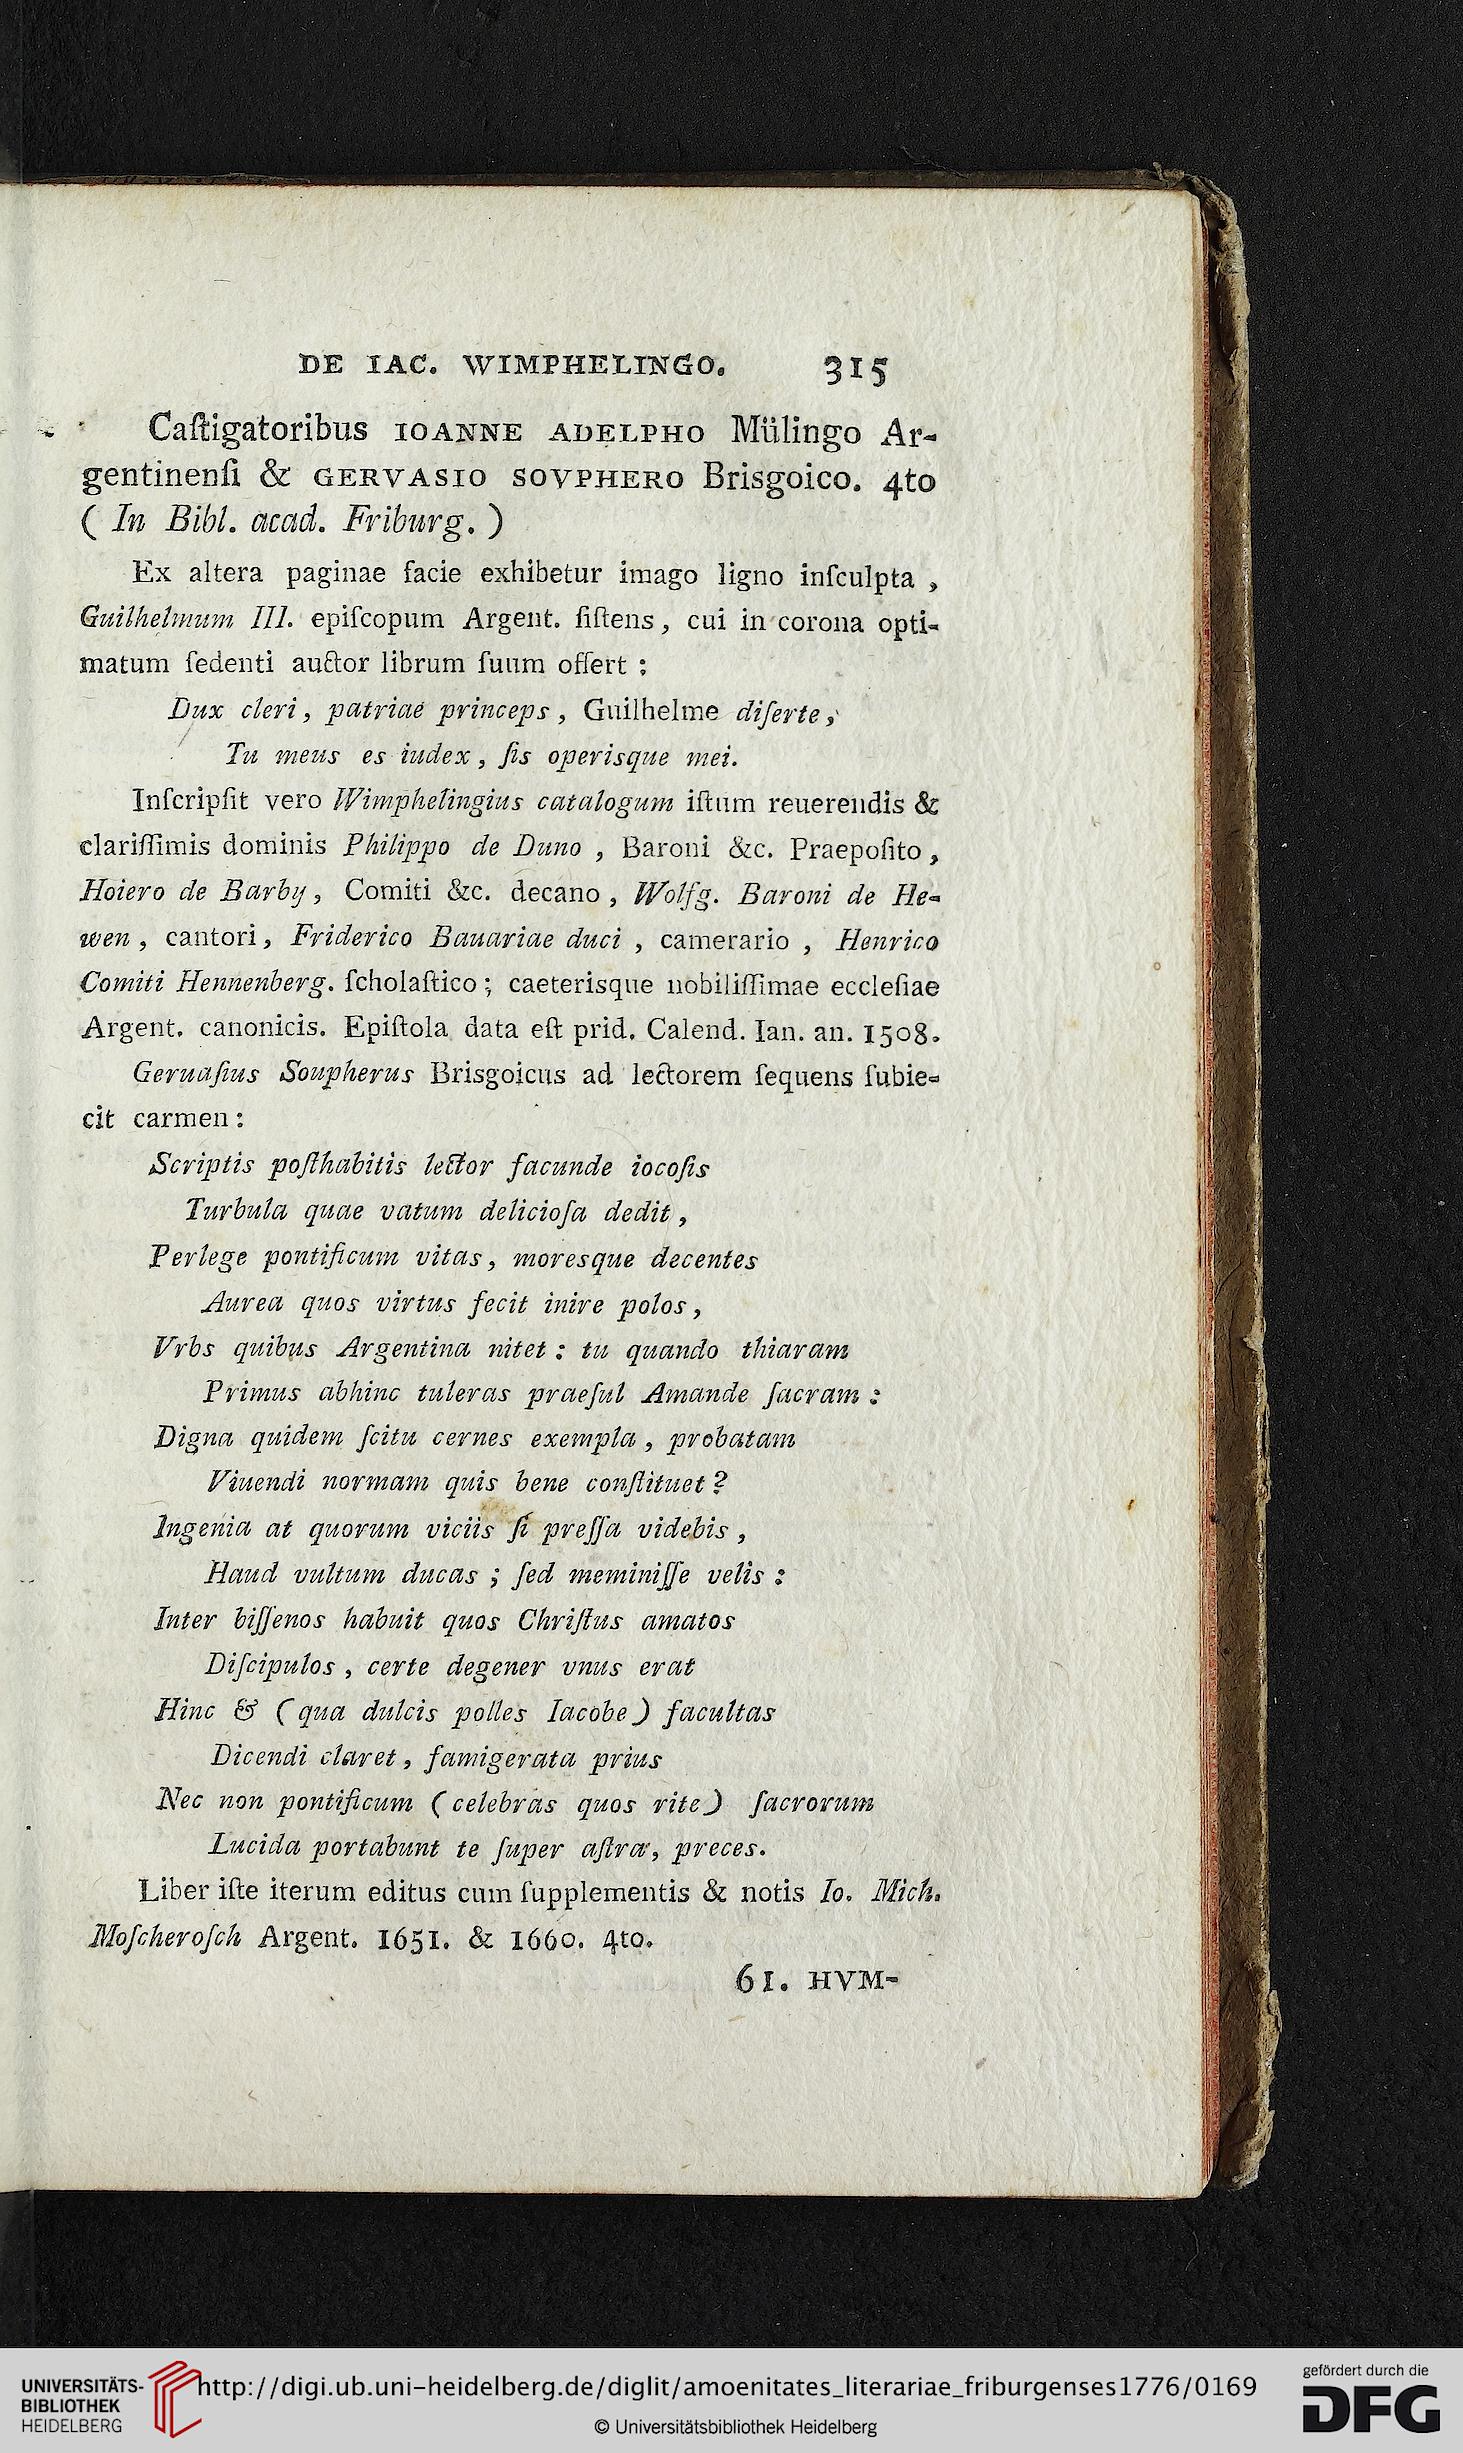 DE IAC. WIMPHELINGO. 315
Caſtigatoribus IOANNE ADELPHO Mülingo Ar-
gentinenſi & GERVASIO SOVPHERO Brisgoico. 4to
( In Bibl. acad. Friburg. )
Ex altera paginae facie exhibetur imago ligno inſculpta ,
Guilhelmum III. epiſcopum Argent. ſiſtens, cui in corona opti-
matum ſedenti auctor librum ſuum offert :
Dux cleri, patriae princeps, Guilhelme diſerte,
Tu meus es iudex, ſis operisque mei.
Inſcripſit vero Wimphelingius catalogum iſtum reuerendis &
clariſſimis dominis Philippo de Duno , Baroni &c. Praepoſito,
Hoiero de Barby, Comiti &c. decano, Wolfg. Baroni de He-
wen, cantori, Friderico Bauariae duci , camerario , Henrico
Comiti Hennenberg. ſcholaſtico; caeterisque nobiliſſimae eccleſiae
Argent. canonicis. Epiſtola data eſt prid. Calend. Ian. an. 1508.
Geruaſius Soupherus Brisgoicus ad lectorem ſequens ſubie-
cit carmen:
Scriptis poſthabitis lector facunde iocoſis
Turbula quae vatum delicioſa dedit,
Perlege pontificum vitas, moresque decentes
Aurea quos virtus fecit inire polos,
Vrbs quibus Argentina nitet : tu quando thiaram
Primus abhinc tuleras praeſul Amande ſacram :
Digna quidem ſcitu cernes exempla, probatam
Viuendi normam quis bene conſtituet?
Ingenia at quorum viciis ſi preſſa videbis,
Haud vultum ducas ; ſed meminiſſe velis :
Inter biſſenos habuit quos Chriſtus amatos
Diſcipulos, certe degener vnus erat
Hinc & (qua dulcis polles Iacobe) facultas
Dicendi claret, famigerata prius
Nec non pontificum (celebras quos rite) ſacrorum
Lucida portabunt te ſuper aſtra, preces.
Liber iſte iterum editus cum ſupplementis & notis Io. Mich.
Moſcheroſch Argent. 1651. & 1660. 4to.
61. HVM-
UNIVERSITÄTS-
BIBLIOTHEK
HEIDELBERG
http://digi.ub.uni-heidelberg.de/diglit/amoenitates_literariae_friburgenses1776/0169
© Universitätsbibliothek Heidelberg
gefördert durch die
DFG